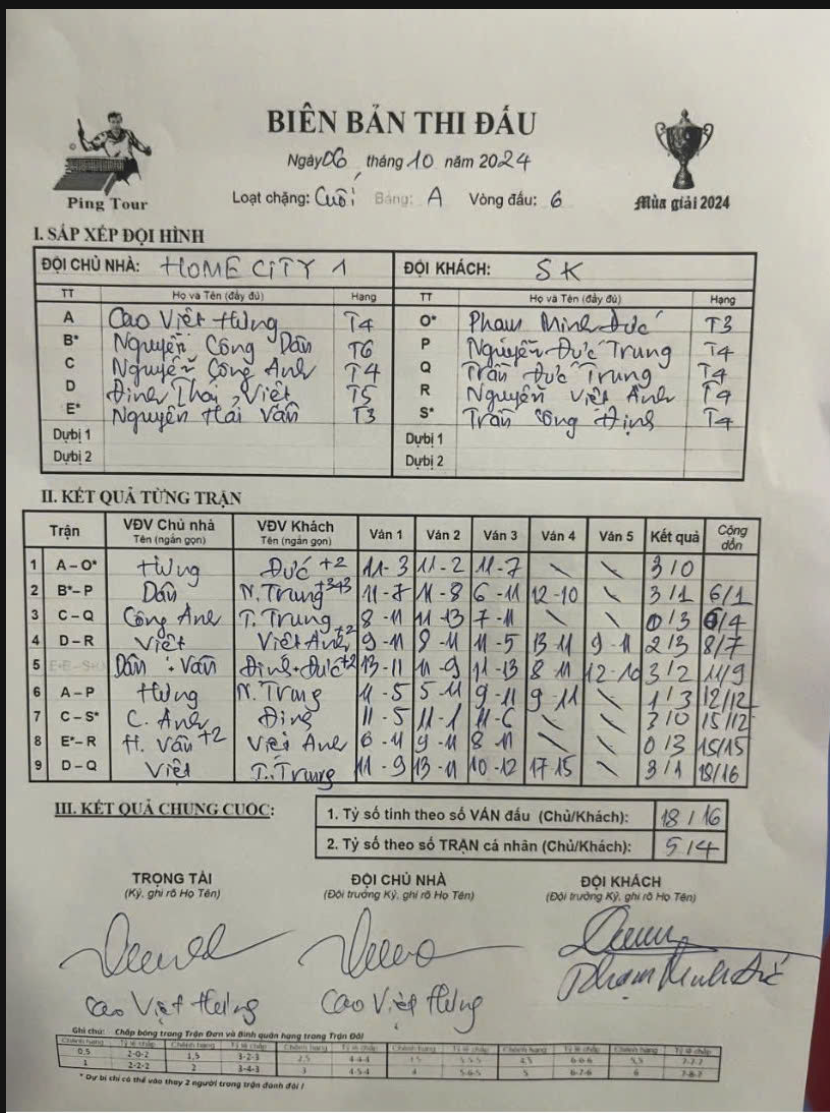 BIÊN BẢN THI ĐẤU
Ngày 06, tháng 10 năm 2024
Ping Tour
Loạt chặng: Cuối Bảng: A Vòng đấu: 6
Mùa giải 2024
I. SẮP XẾP ĐỘI HÌNH
ĐỘI CHỦ NHÀ: HOME CITY 1 ĐỘI KHÁCH: SK
TT Họ và Tên (đầy đủ) Hạng TT Họ và Tên (đầy đủ) Hạng
A Cao Việt Hưng T4 O* Phạm Minh Đức T3
B* Nguyễn Công Dân T6 P Nguyễn Đức Trung T4
C Nguyễn Công Anh T4 Q Trần Đức Trung T4
D Đinh Thái Việt T5 R Nguyễn Việt Anh T4
E* Nguyễn Hải Vân T3 S* Trần Công Định T4
Dự bị 1 Dự bị 1
Dự bị 2 Dự bị 2
II. KẾT QUẢ TỪNG TRẬN
Trận VĐV Chủ nhà Tên (ngắn gọn) VĐV Khách Tên (ngắn gọn) Ván 1 Ván 2 Ván 3 Ván 4 Ván 5 Kết quả Cộng dồn
1 A – O* Hưng Đức +2 11-3 11-2 11-7 \ \ 3/0
2 B* – P Dân N. Trung +343 11-7 11-8 6-11 12-10 \ 3/1 6/1
3 C – Q Công Anh T. Trung 8-11 11-13 7-11 \ \ 0/3 6/4
4 D – R Việt Việt Anh +2 9-11 8-11 11-5 13-11 9-11 2/3 8/7
5 Dân + Vân Định+Đức +2 13-11 11-9 11-13 8-11 12-10 3/2 11/9
6 A – P Hưng N. Trung 11-5 5-11 9-11 9-11 \ 1/3 12/12
7 C – S* C. Anh Định 11-5 11-1 11-6 \ \ 3/0 15/12
8 E* – R H. Vân +2 Việt Anh 6-11 9-11 8-11 \ \ 0/3 15/15
9 D – Q Việt T. Trung 11-9 13-11 10-12 17-15 \ 3/1 18/16
III. KẾT QUẢ CHUNG CUỘC:
1. Tỷ số tính theo số VÁN đấu (Chủ/Khách): 18 / 16
2. Tỷ số theo số TRẬN cá nhân (Chủ/Khách): 5/4
TRỌNG TÀI ĐỘI CHỦ NHÀ ĐỘI KHÁCH
(Ký, ghi rõ Họ Tên) (Đội trưởng Ký, ghi rõ Họ Tên) (Đội trưởng Ký, ghi rõ Họ Tên)
Cao Việt Hưng Cao Việt Hưng Phạm Minh Đức
Ghi chú: Chấp bóng trong Trận Đơn và Bình quân hạng trong Trận Đôi
Chênh hạng Tỷ lệ chấp Chênh hạng Tỷ lệ chấp Chênh hạng Tỷ lệ chấp Chênh hạng Tỷ lệ chấp Chênh hạng Tỷ lệ chấp
0,5 2-0-2 1,5 3-2-3 2,5 4-4-4 5-5-5 4,5 6-6-6 5,5 7-7-7
1 2-2-2 2 3-4-3 3 4-5-4 4 5-6-5 5 6-7-6 6 7-8-7
* Dự bị chỉ có thể vào thay 2 người trong trận đánh đôi !